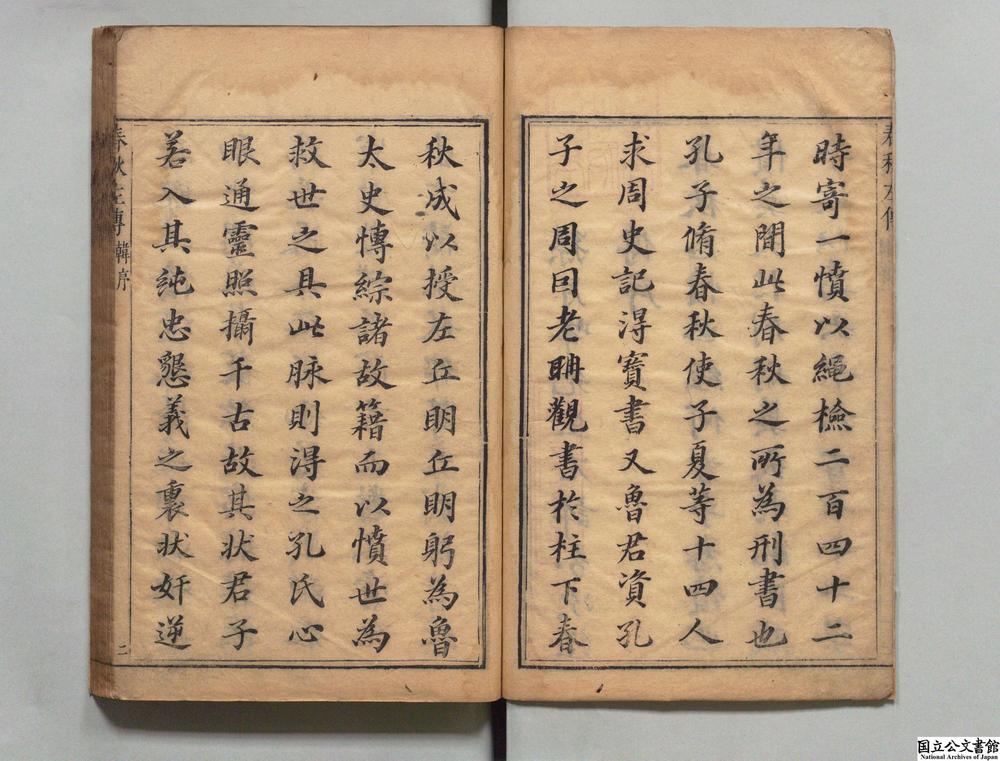 時寄一憤以繩檢二百四十二
年之間此春秋之所為刑書也
孔子脩春秋使子夏等十四人
求周史記得寶書又魯君資孔
子之周因老聃觀書於柱下春
秋成以授左丘明丘明躬為魯
太史博綜諸故籍而以憤世為
救世之具此脉則得之孔氏心
眼通靈照攝千古故其状君子
若入其純忠懇義之裏状奸逆
春秋左傳
春秋左傳 韓序
二
国立公文書館
National Archives of Japan